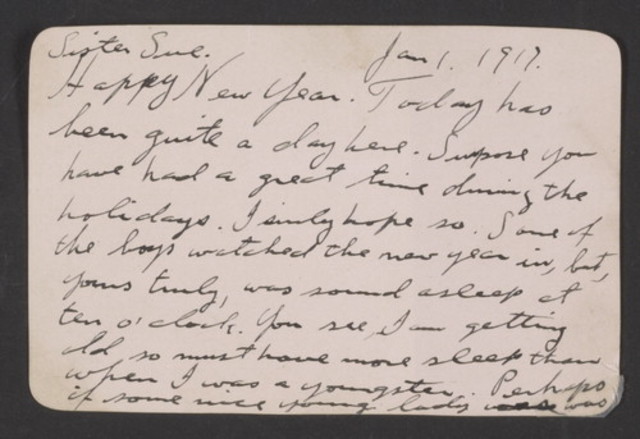 Sister Sue. Jan 1. 1917.
Happy New Year. Today has
been quite a day here. Suppose you
have had a great time during the
holidays. I surely hope so. Some of
the boys watched the new year in, but,
yours truly, was sound asleep at
ten o'clock. You see I am getting
old so must have more sleep than
when I was a youngster. Perhaps
if some nice young lady was